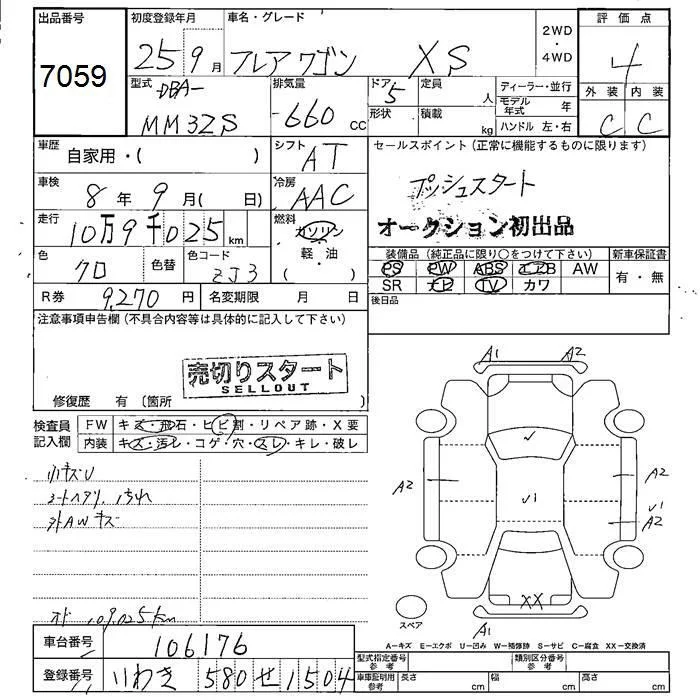 出品番号 初度登録年月 車名・グレード 2WD・4WD 評価点
7059 25年9月 フレアワゴン XS 4
型式 排気量 ドア 定員 人 ディーラー・並行 外装 内装
DBA- 660cc 5 モデル年式 年 C C
MM32S 形状 積載 kg ハンドル 左・右
車歴 自家用・( ) シフト AT セールスポイント(正常に機能するものに限ります)
車検 8年9月(日) 冷房 AAC プッシュスタート
走行 10万9千025km 燃料 ガソリン オークション初出品
(軽・油)
色 クロ 色替 色コード ZJ3 装備品(純正品に限り○をつけて下さい) 新車保証書
PS PW ABS エアB AW 有・無
SR ナビ TV カワ
R券 9,270円 名変期限 月 日 後日品
注意事項申告欄(不具合内容等は具体的に記入して下さい)
売切りスタート
SELLOUT
修復歴 有(箇所 )
検査員記入欄 FW キズ・飛石・ヒビ割・リペア跡・X要
内装 キズ・汚レ・コゲ・穴・スレ・キレ・破レ
小キズU
シートヘタリ、汚れ
外AWキズ
オド 109,025km
A1 A2
A2 A2
A2
XX
A1
スペア
A-キズ E-エクボ U-凹み W-補修跡 S-サビ C-腐食 XX-交換済
車台番号 106176
型式指定番号 参考 類別区分番号 参考
登録番号 いわき 580 せ 1504
車庫証明用 参考 長さ cm 幅 cm 高さ cm